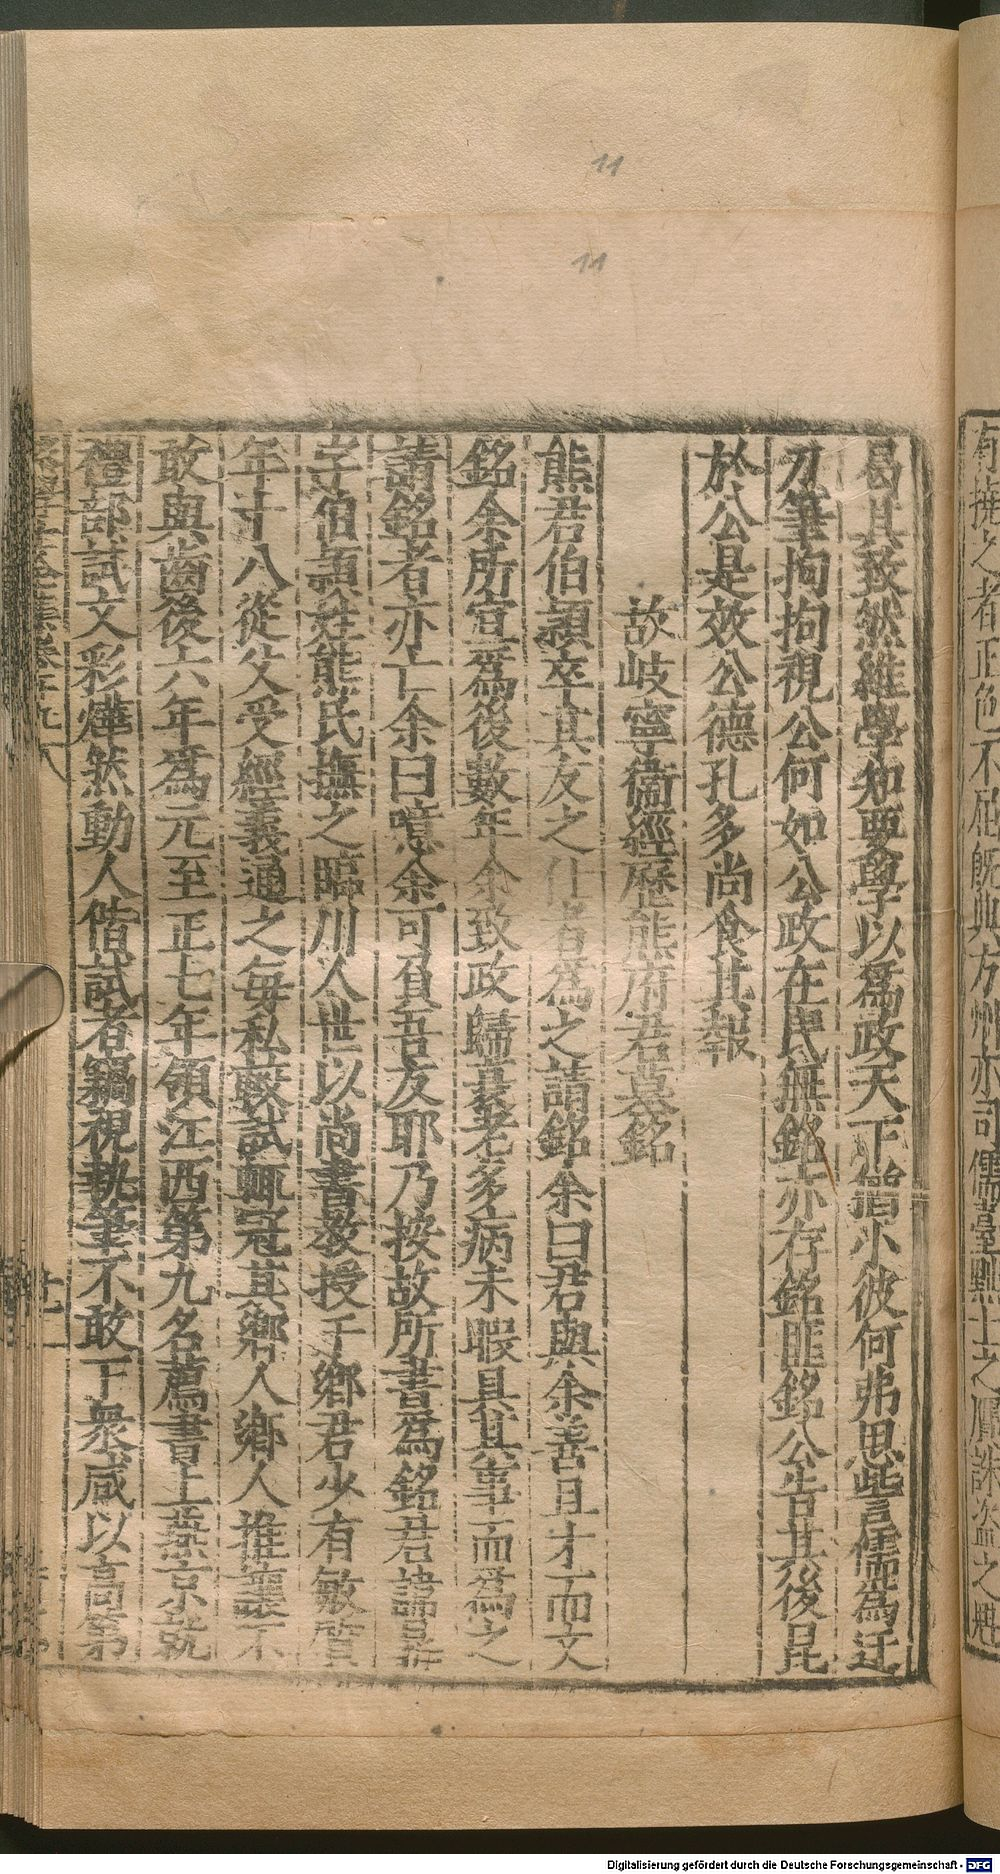 11
11
曷其致然維學知要學以爲政天下猶小彼何弗思訾儒爲迂
刀筆拘拘視公何如公政在民無銘亦存銘匪銘公告其後昆
於公是效公德孔多尚食其報
故岐寧衞經歷熊府君墓銘
熊君伯潁卒其友之仕者爲之請銘余曰君與余善且才而文
銘余所宜爲後數年余致政歸衰老多病未暇具其事而爲之
請銘者亦亡余曰噫余可負吾友耶乃按故所書爲銘君諱鼎
字伯潁姓熊氏撫之臨川人世以尚書教授于鄉君少有敏質
年十八從父受經義通之每私較試輒冠其鄉人鄉人推讓不
敢與齒後六年爲元至正七年領江西第九名薦書上燕京就
禮部試文彩燁然動人偕試者竊視執筆不敢下衆咸以高第
Digitalisierung gefördert durch die Deutsche Forschungsgemeinschaft - DFG